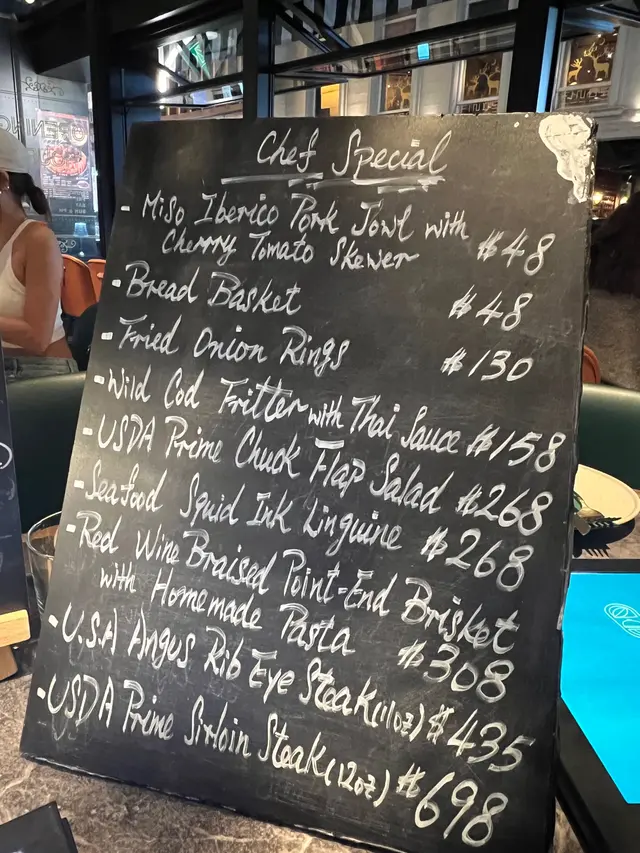 Chef Special
- Miso Iberico Pork Jowl with
Cherry Tomato Skewer $48
- Bread Basket $48
- Fried Onion Rings $130
- Wild Cod Fritter with Thai Sauce $158
- USDA Prime Chuck Flap Salad $268
- Seafood Squid Ink Linguine $268
- Red Wine Braised Point-End Brisket
with Homemade Pasta $308
- U.S.A Angus Rib Eye Steak (11oz) $435
- USDA Prime Sirloin Steak (12oz) $698
OPENING